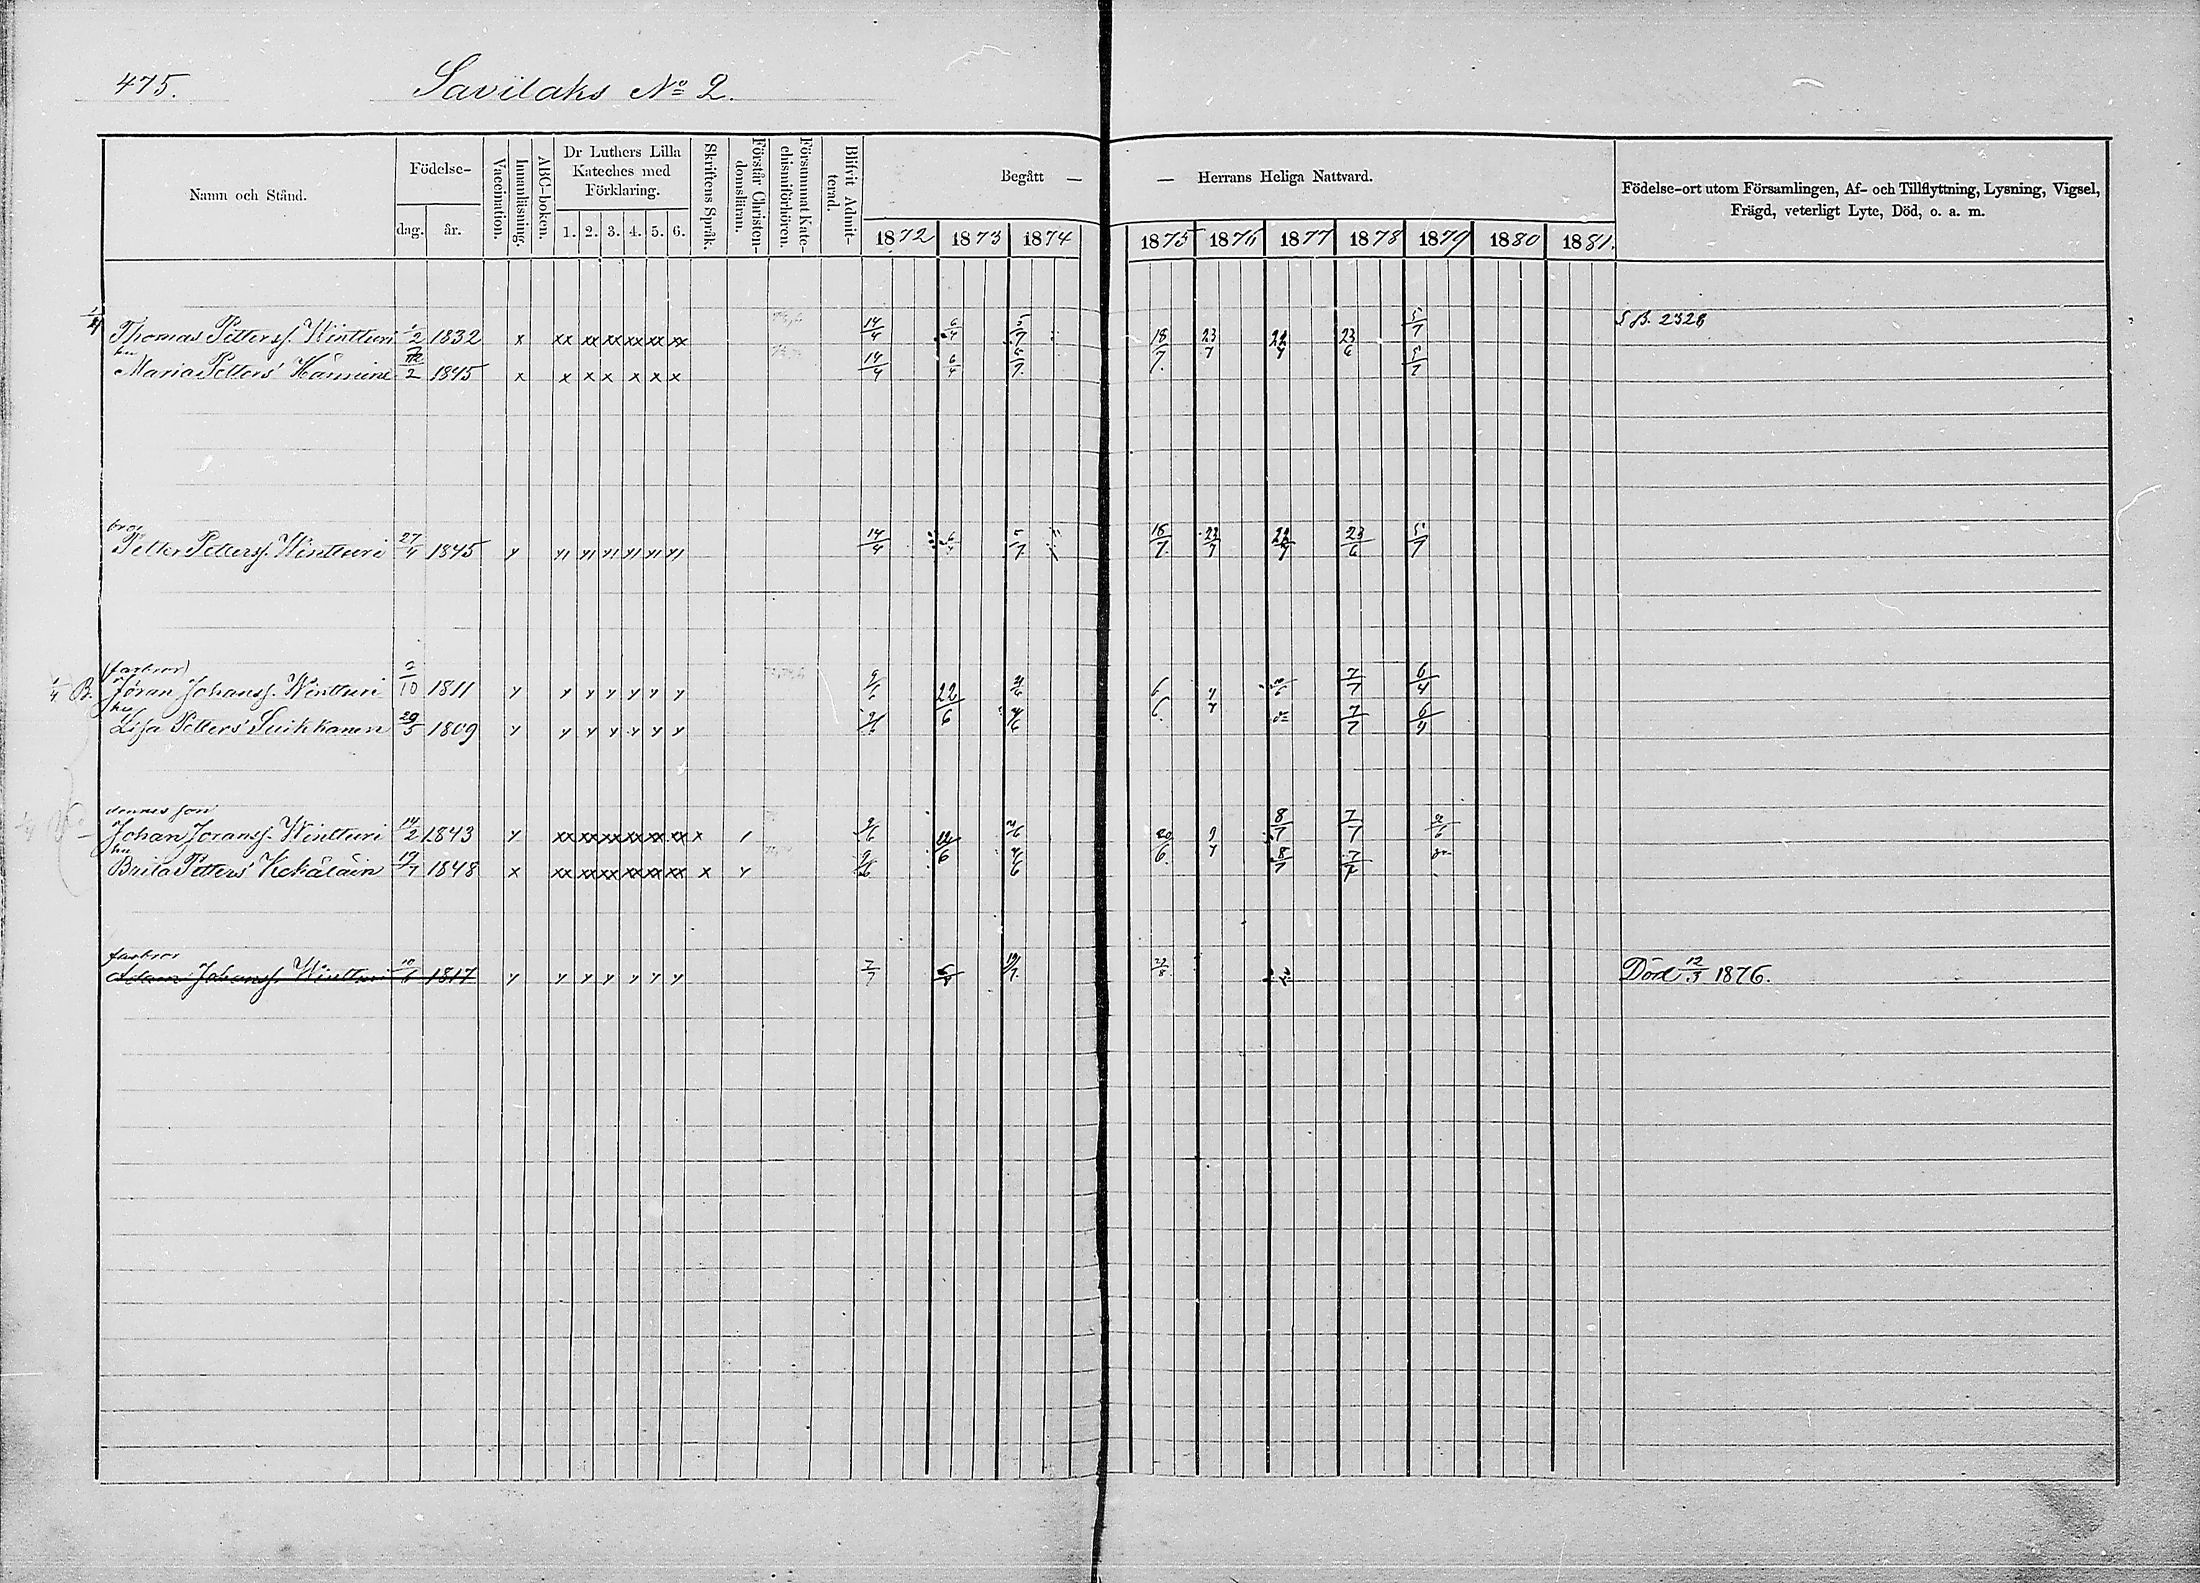 475. Savilaks No 2.
Namn och Stånd.
Födelse-
dag. år.
Vaccination.
Innanläsning.
ABC-boken.
Dr Luthers Lilla
Kateches med
Förklaring.
1. 2. 3. 4. 5. 6.
Skriftens Språk.
Förstår Christen-
domsläran.
Försummat Kate-
chismiförhören.
Blifvit Admit-
terad.
Begått — — Herrans Heliga Nattvard.
1872 1873 1874 1875 1876 1877 1878 1879 1880 1881.
Födelse-ort utom Församlingen, Af- och Tillflyttning, Lysning, Vigsel,
Frägd, veterligt Lyte, Död, o. a. m.
Thomas Petterss. Wintturi 1/2 1832 x xx xx xx xx xx xx 14/4 6/4 5/7 18/7 23/7 22/7 23/6 5/7 S.B. 2328
hu
Maria Petters' 2 1845 x x x x x x x 14/4 6/4 5/7. 5/7
bror
Petter Petterss. Wintturi 27/4 1845 14/4 6/4 5/7 18/7. 23/7 22/7 23/6 5/7
(farbror)
B. Jöran Johanss. Wintturi 7/10 1811 y y y y y y y 22/6 6/6. 7/7 6/4
hu
Lisa Petters' Suikkanen 29/5 1809 y y y y y y y 7/7 6/4
dennes son
Johan Joranss. Wintturi 14/2 1843 y xx xx xx xx xx xx x 20/6. 8/7 7/7
hu
Brita Petters' Kekäläin 19/7 1848 x xx xx xx xx xx xx x y 8/7 7/7
farbror
Adam Johanss. Wintturi 1817 y y y y y y y 7/7 19/7. Död 12/3 1876.